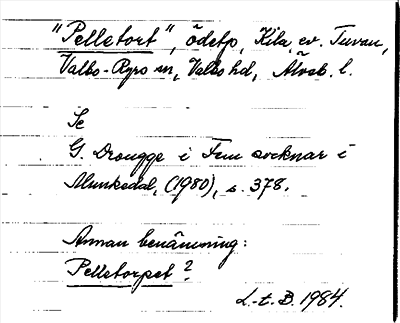 "Pelletort", ödetp, Kila, ev. Tuvan,
Valbo-Ryrs sn, Valbo hd, Älvsb. l.
Se
G. Drougge i Fem socknar i
Munkedal, (1980), s. 378.
Annan benämning:
Pelletorpet?
L-t. B. 1984.